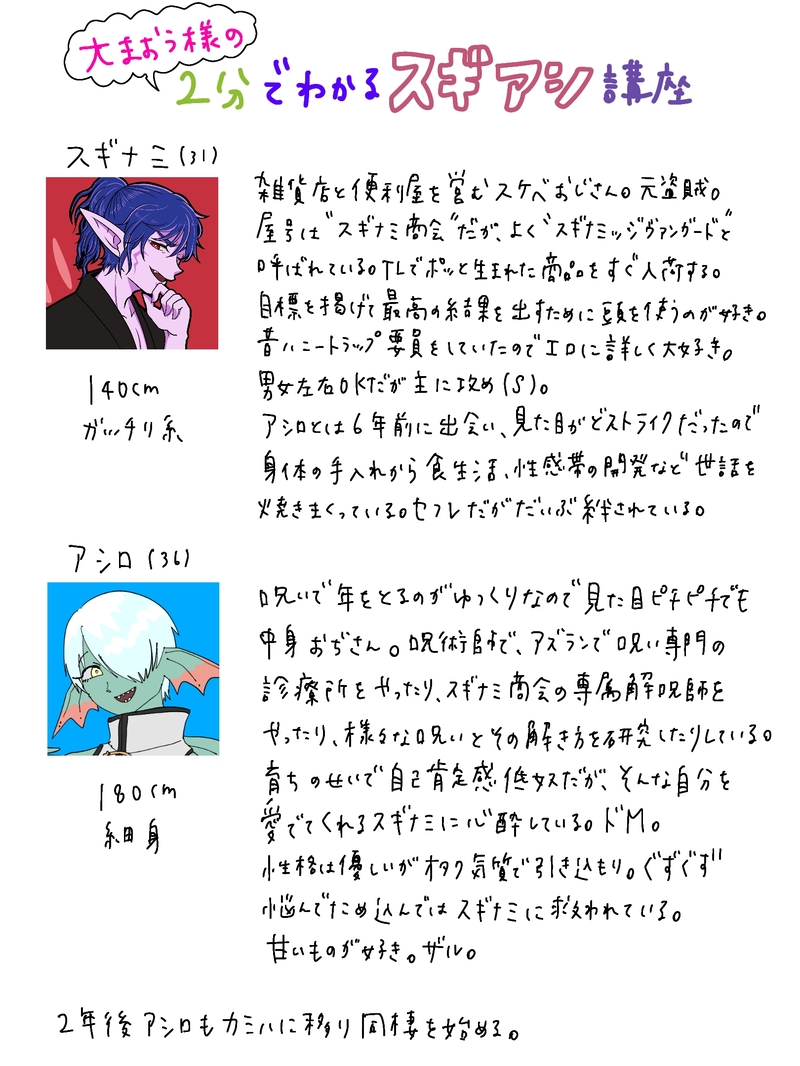 大まおう様の
2分でわかるスギアシ講座
スギナミ(31)
雑貨店と便利屋を営むスケベおじさん。元盗賊。
屋号は"スギナミ商会"だが、よく"スギナミッジヴァンガード"と
呼ばれている。TLでポッと生まれた商品をすぐ入荷する。
目標を掲げて最高の結果を出すために頭を使うのが好き。
昔ハニートラップ要員をしていたのでエロに詳しく大好き。
男女左右OKだが主に攻め(S)。
アシロとは6年前に出会い、見た目がどストライクだったので
身体の手入れから食生活、性感帯の開発など世話を
焼きまくっている。セフレだがだいぶ絆されている。
140cm
ガッチリ系
アシロ(36)
呪いで年をとるのがゆっくりなので見た目ピチピチでも
中身おぢさん。呪術師で、アズランで呪い専門の
診療所をやったり、スギナミ商会の専属解呪師を
やったり、様々な呪いとその解き方を研究したりしている。
育ちのせいで自己肯定感低奴だが、そんな自分を
愛でてくれるスギナミに心酔している。ドM。
性格は優しいがオタク気質で引き込もり。ぐずぐず
悩んでため込んではスギナミに救われている。
甘いものが好き。ザル。
180cm
細身
2年後アシロもカミハに移り同棲を始める。